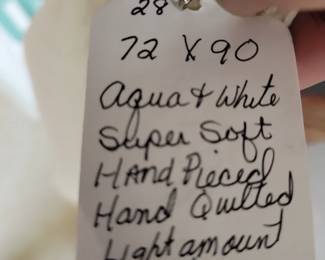 28
72 X 90
Aqua & White
Super Soft
Hand Pieced
Hand Quilted
Light amount